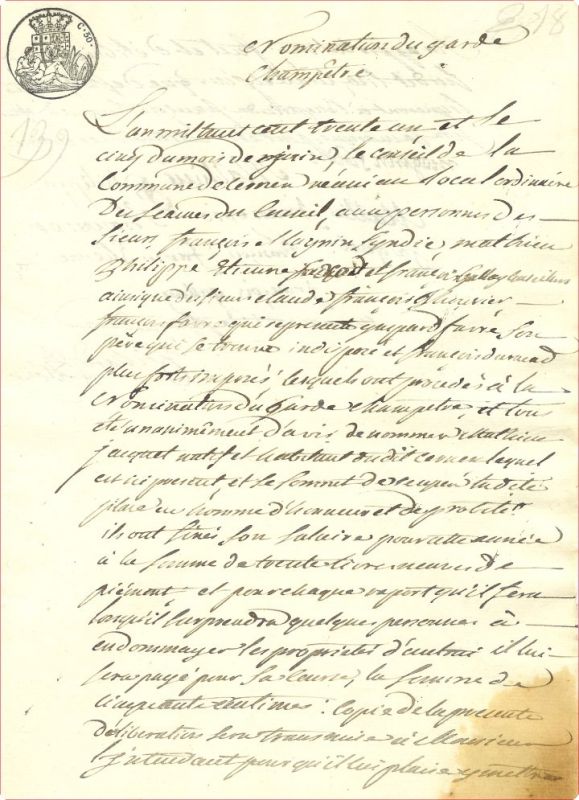 C. 50.
139
Nomination du garde
Champêtre
L'an mil huit cent trente un et le
cinq du mois de juin, le conseil de la
Commune de Cernex réuni au local ordinaire
Des séances du Conseil, aux personnes des
sieurs françois Magnin Syndic mathieu
Philippe Etienne jacquet et françois Conseillers
ainsi que des sieurs claude françois
françois favre qui represente gaspard favre Son
père qui se trouve indisposé et françois
plus forts imposés lesquels ont procédés à la
Nomination du Garde champetre, et tous
été unanimêment d'avis de nommer Mathieu
jacquet natif et habitant dudit cernex lequel
est ici présent et se Somet de remplir la dite
place en homme d'honneur et de probité
ils ont fixés son salaire pour cette année
à la Somme de trente livres neuves de
piémont et pour chaque raport qu'il fera
lorsqu'il Surprendra quelques personnes à
endommager les propriétés d'autrui il lui
sera payé pour Sa Course, la Somme de
Cinquante centimes: Copie de la presente
déliberation Sera transmise à Monsieur
l'intendant pour qu'il lui plaise y mettre